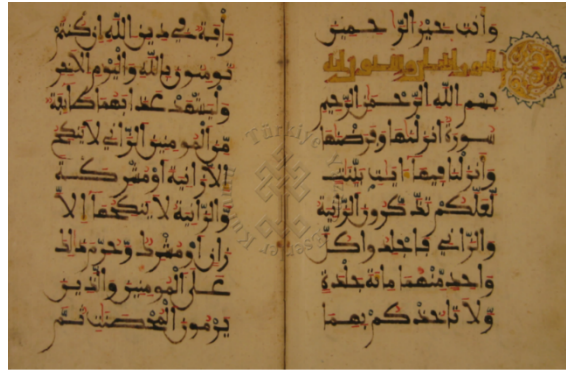 وأنت خير الرحمين
بسم الله الرحمن الرحيم
سورة أنزلنها وفرضنها
وأنزلنا فيها ءايت بينت
لعلكم تذكرون الزانية
والزاني فاجلدوا كل
وحد منهما مائة جلدة
ولا تأخذكم بهما
رأفة في دين الله إن كنتم
تومنون بالله واليوم الاخر
وليشهد عذابهما طائفة
من المومنين الزاني لا ينكح
إلا زانية أو مشركة
والزانية لا ينكحها إلا
زان أو مشرك وحرم ذلك
على المومنين والذين
يرمون المحصنت ثم
Türkiye